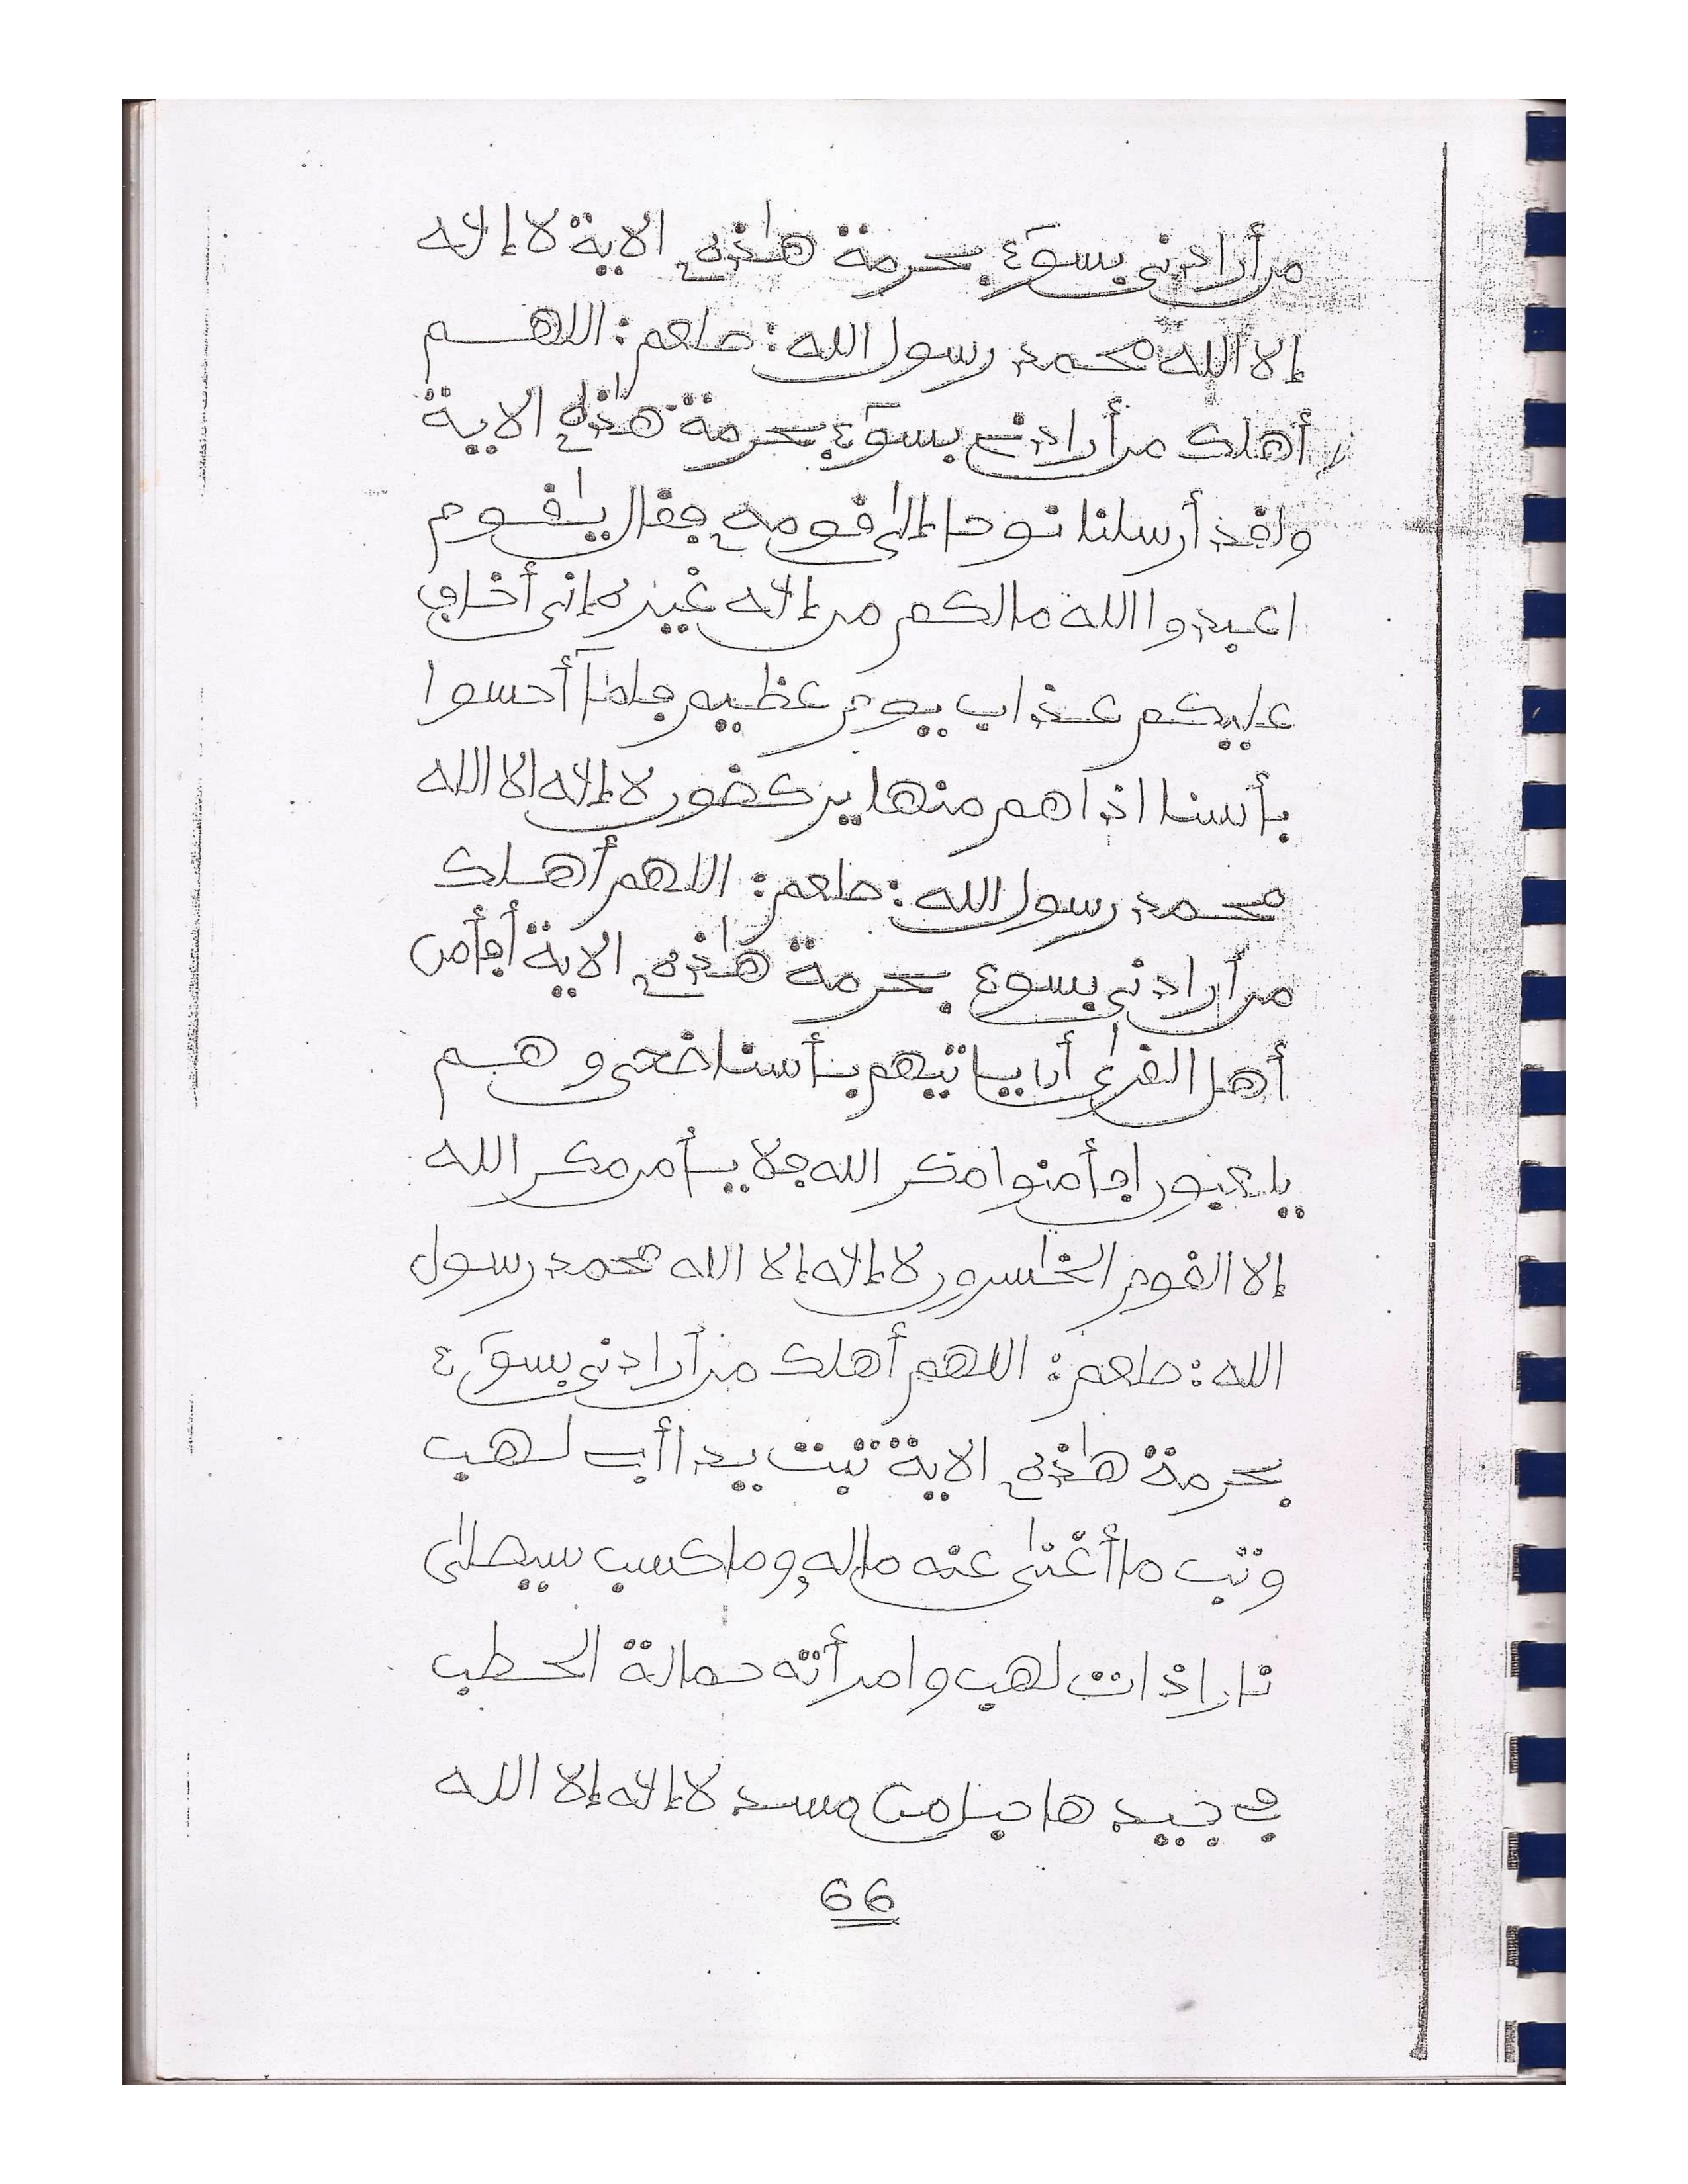 من أرادنى بسوء بحرمة هذه الاية لا إله
إلا الله محمد رسول الله: صلعم: اللهم
أهلك من أرادنى بسوء بحرمة هذه الاية
ولقد أرسلنا نوحا إلى قومه فقال يقوم
اعبدوا الله مالكم من إله غيره إنى أخاف
عليكم عذاب يوم عظيم فلما أحسوا
بأسنا اذا هم منها يركضون لا إله الا الله
محمد رسول الله: صلعم: اللهم أهلك
من أرادنى بسوء بحرمة هذه الاية أفأمن
أهل القرى أن ياتيهم بأسنا ضحى وهم
يلعبون افأمنوا مكر الله فلا يأمن مكر الله
إلا القوم الخسرون لا إله إلا الله محمد رسول
الله: صلعم: اللهم أهلك من أرادنى بسوء
بحرمة هذه الاية تبت يدا أبى لهب
وتب ما أغنى عنه ماله وما كسب سيصلى
نارا ذات لهب وامرأته حمالة الحطب
فى جيدها حبل من مسد لا إله إلا الله
66